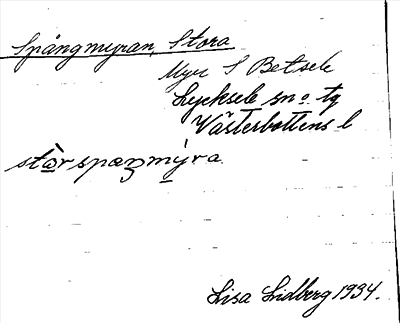 Spångmyran, Stora
Myr S Betsele
Lycksele sn o. tg
Västerbottens l
stòrspæŋmýra
Lisa Lidberg 1934.